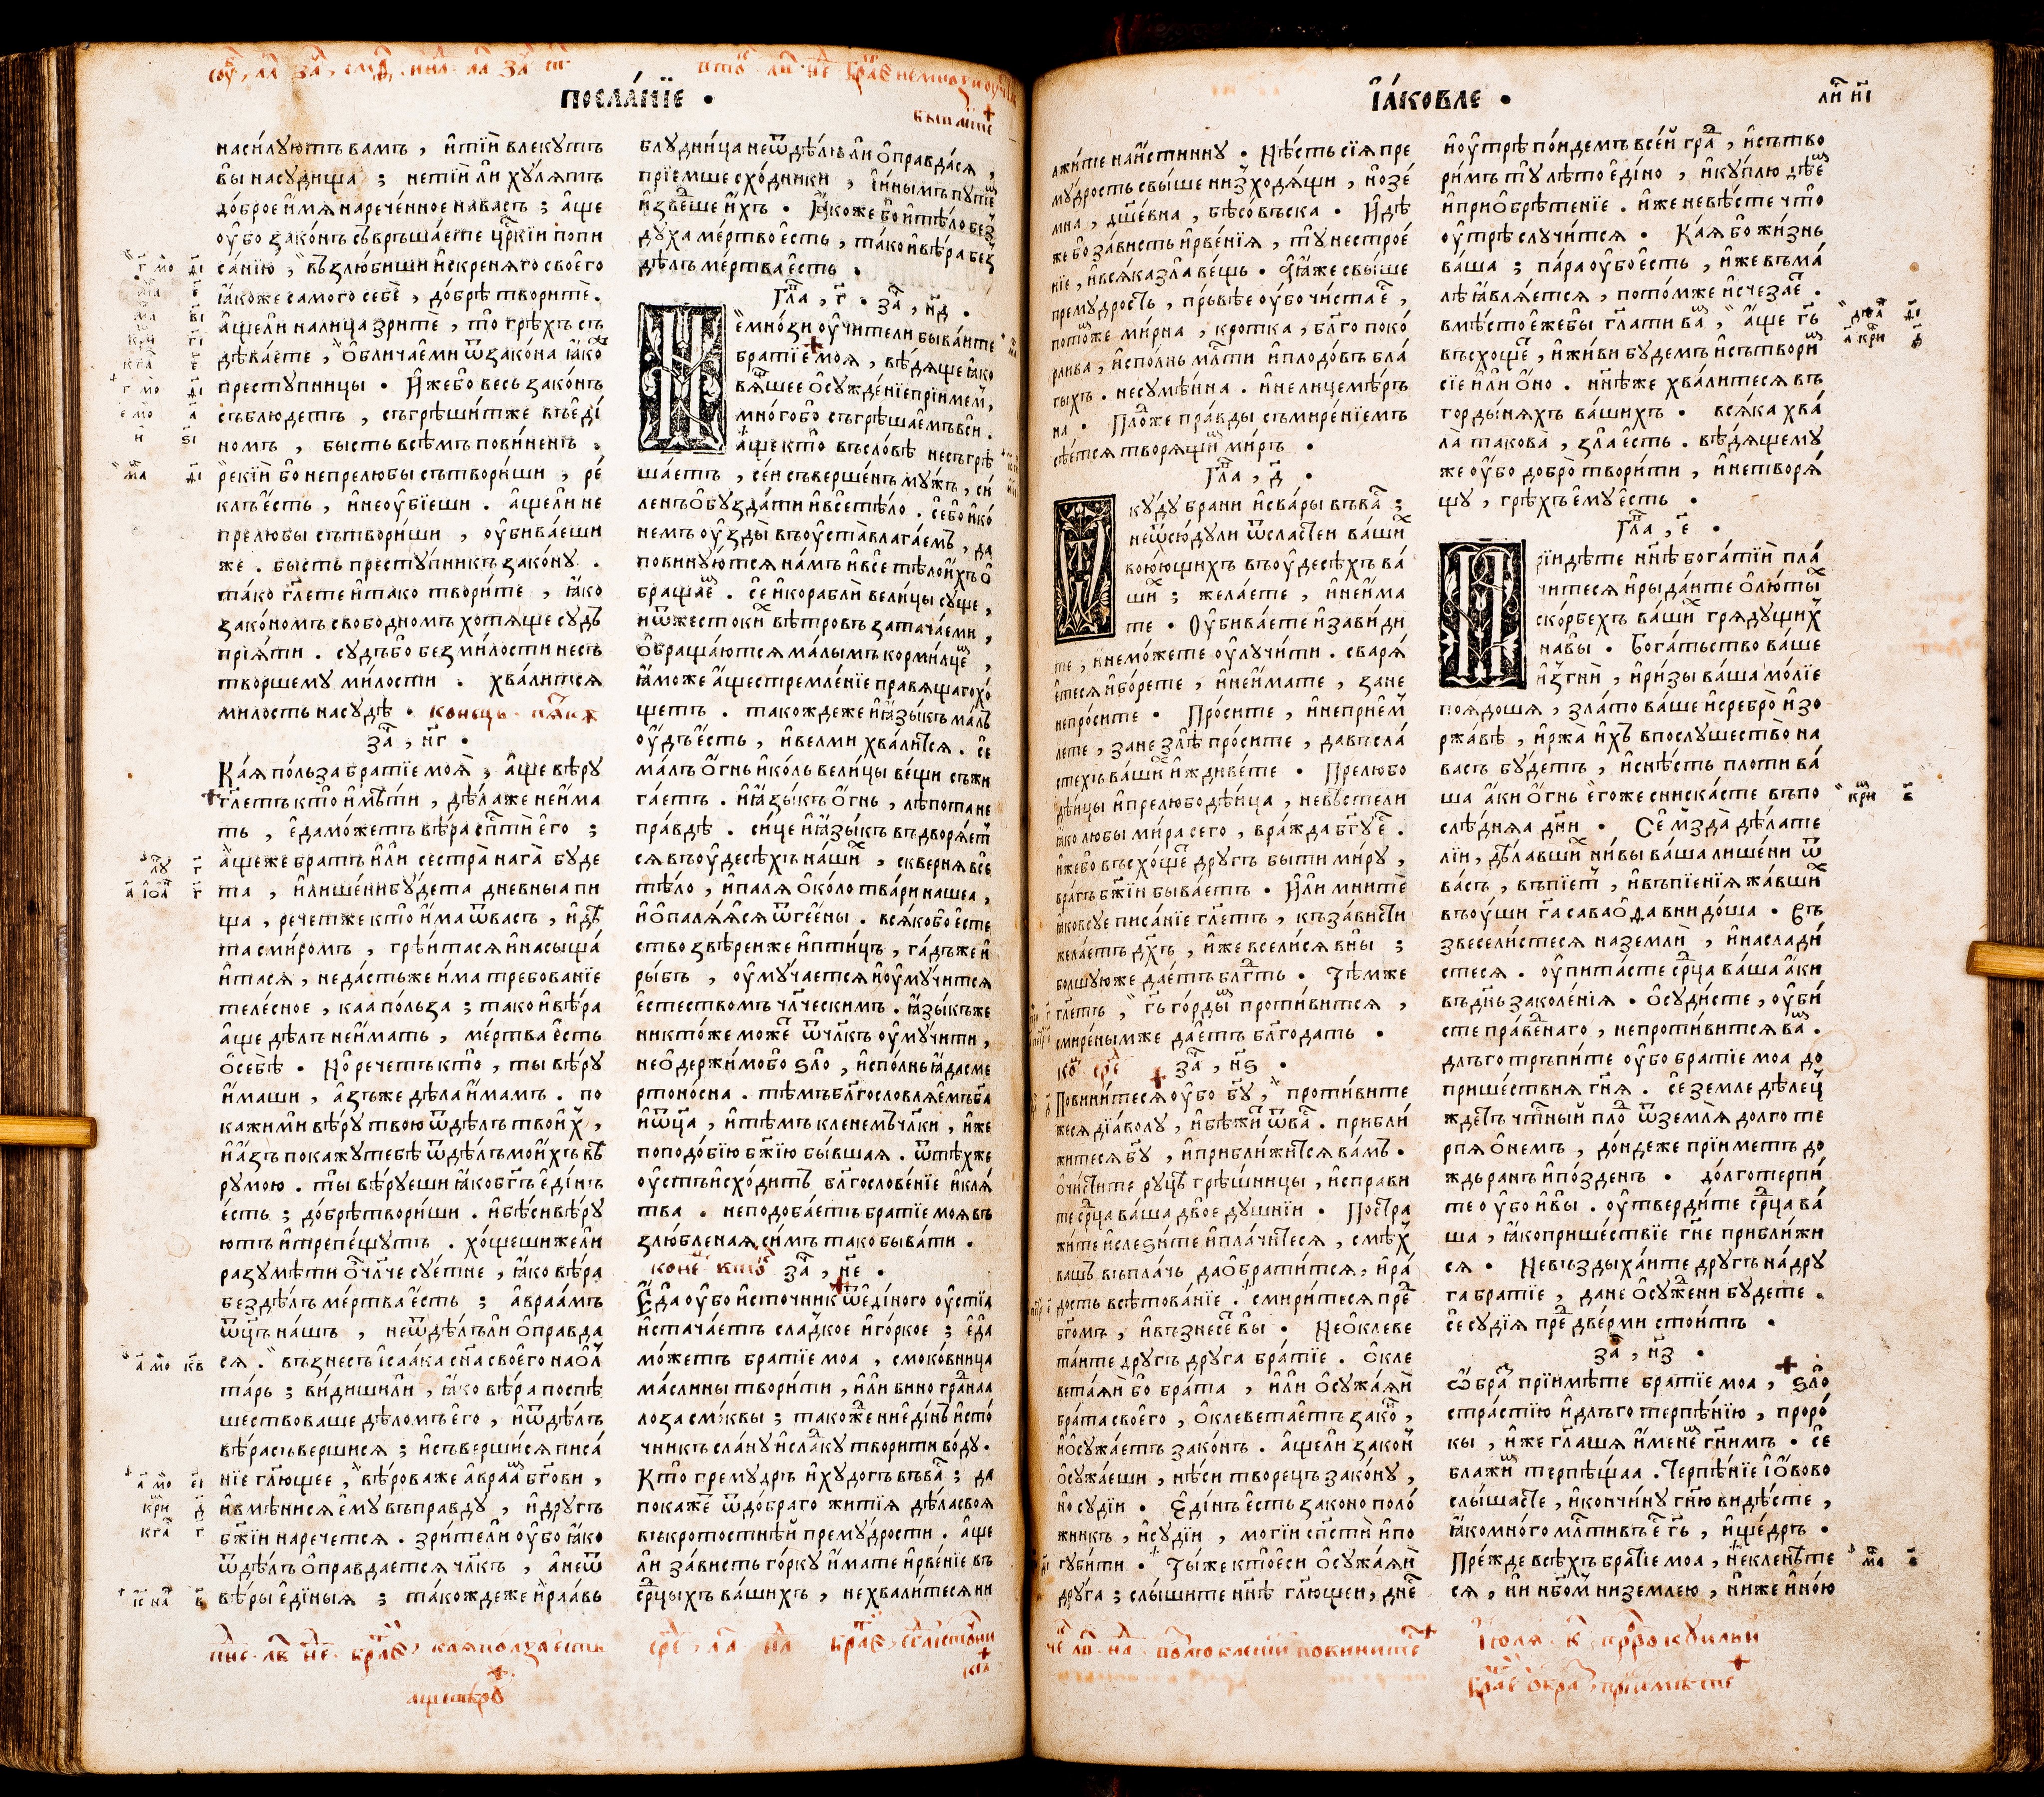 посла́нїе .
наси́луютъ вамъ , и҆тїи́ влекутъ
вы насу́дища ; нетїи́ ли хꙋ́лятъ
до́брое и҆́мя нарече́нное навасъ ; а҆́ще
оу҆́бо зако́нъ съвръша́ете цр҃кїи попи
са́нїю , въ́злю́биши и҆́скреняго своего̀
ꙗ҆́коже самого себѐ , до́брѣ творитѐ .
а҆́щели налица зритѐ , то грѣ́хъ съ
дѣ́ваете , ѡ҆бличаеми ѿзако́на ꙗ҆́ко
престу́пницы . И҆́жебо весь зако́нъ
съблюдетъ , съгрѣши́тже въеди́
номъ , бысть всѣ́мъ пови́ненъ .
реки́й бо непрелюбы сътвори́ши , ре́
клъе҆́сть , и҆неоубїеши . а҆́щели не
прелюбы сътвори́ши , оубива́еши
же . бысть престу́пникъ зако́ну .
та́ко гл҃ете и҆тако твори́те , ꙗ҆́ко
зако́номъ свобо́дномъ хотяще судъ
прїя́ти . су́дъбо без ми́лости несъ
творшему ми́лости . хва́лится
милость насудѣ̀ .
за҃ , н҃г .
Ка́я по́льза братїе моя̀ , а҆́ще вѣ́ру
гл҃етъ кто и҆мѣти , дѣ́лаже неи҆́ма
ть , е҆дамо́жетъ вѣ́ра сп҃сти̂ е҆го ;
а҆́щеже братъ и҆ли́ сестра̀ нага̀ буде
та , и҆лише́нибу́дета дневныа пи
ща , речетже кто и҆́ма ѿвасъ , и҆дѣ
та сми́ромъ , грѣ́итася и҆насыща́
и҆тася , неда́стъже и҆́ма требованїе
теле́сное , каа по́льза ; тако и҆вѣ́ра
а҆́ще дѣ́лъ неи҆́мать , ме́ртва е҆́сть
о҆себѣ̀ . Но речетъ кто , ты вѣ́ру
и҆́маши , а҆́зъже дѣ́ла и҆́мамъ . по
кажи́ми вѣ́ру твою ѿдѣ́лъ твои́х ,
и҆а҆́зъ покажутебѣ̀ ѿдѣ́лъ мои́хъ вѣ
ру мою . ты вѣ́руеши ꙗ҆́кобг҃ъ е҆ди́нъ
е҆́сть ; до́брѣтвори́ши . и҆бѣси вѣ́ру
ютъ и҆трепе́щутъ . хо́щешижели
разумѣ́ти о҆чл҃че су́етне , ꙗ҆́ко вѣ́ра
бездѣ́лъ ме́ртва е҆́сть ; а҆враа́мъ
ѿц҃ъ на́шъ , неѿдѣ́лъли о҆правда
ся . възнесъ і҆саа́ка сн҃а своего̀ наол
та́рь ; ви́дишили , ꙗ҆́ко вѣ́ра поспѣ
шествоваше дѣло́мъ е҆го , и҆ѿдѣ́лъ
вѣ́ра съвершися ; и҆съвершися писа́
нїе гл҃ющее , вѣ́роваже а҆враа́м бг҃ови ,
и҆вмѣнися е҆му въправду , и҆другъ
бж҃їи наречется . зрителѝ оу҆́бо ꙗ҆́ко
ѿдѣ́лъ о҆правдается чл҃къ , а҆неѿ
вѣ́ры е҆ди́ныя ; та́кождеже и҆раавь
блудни́ца неѿдѣ́лъли о҆правда́ся ,
прїе́мше схо́дники , и҆и҆ны́мъ путе́м
и҆зве́дше и҆́хъ . Ꙗ҆́коже бо и҆тѣ́ло без
ду́ха ме́ртво е҆́сть , та́ко и҆вѣ́ра без
дѣ́лъ ме́ртва е҆́сть .
Гла҃ , г҃ . за҃ , н҃д .
Не мно́зи оучи́тели быва́ите
братїе моя , вѣ́дяще ꙗ҆́ко
вя́щшее о҆сужде́нїе прїи́мем ,
мно́гобо съгрѣша́емъ вси .
а҆́ще кто въсло́вѣ несъгрѣ
ша́етъ , се́и съверше́нъ му́жъ , си́
ленъ о҆бузда́ти и҆все тѣ́ло . се́бо и҆ко́
немъ оузды̀ въоуста̀ влага́емъ , да
повину́ются на́мъ и҆все тѣ́ло и҆́хъ о҆
браща́ем . се́ и҆корабли̂ вели́цы су́ще ,
и҆ѿжесто́ки вѣ́тровъ затача́еми ,
о҆браща́ются ма́лымъ корми́лцем ,
ꙗ҆́може а҆́ще стремле́нїе правящаго хо́
щетъ . такождеже и҆ꙗ҆зы́къ ма́лъ
оу҆́дъ е҆́сть , и҆велми хвалится . се
ма́лъ о҆́гнь и҆ко́ль вели́цы ве́щи съжи
га́етъ . и҆ꙗ҆зы́къ о҆́гнь , лѣпота не
пра́вдѣ . си́це и҆ꙗ҆зы́къ въдворя́ет
ся въоудесѣ́хъ на́ших , скверня все
тѣ́ло , и҆паля о҆́коло тва́ри нашеа ,
и҆о҆паля́яся ѿгее́ны . вся́кобо е҆сте
ство звѣре́иже и҆пти́цъ , га́дъже и҆
ры́бъ , оумуча́ется и҆оуму́чится
е҆стество́мъ чл҃ческимъ . ꙗ҆зы́къже
никто́же мо́же ѿчл҃къ оуму́чити ,
неоде́ржимобо ѕло , и҆спо́лнь ꙗ҆́да сме
ртоно́сна . тѣ́мъ бл҃гословля́емъ ба҃
и҆ѿц҃а , и҆тѣ́мъ клене́мъ чл҃ки , и҆же
поподо́бїю бж҃їю бы́вшая . ѿтѣ́хже
оу҆́стъ и҆схо́дитъ бл҃гослове́нїе и҆кля́
тва . неподоба́етъ братїе моя въ
злю́бленая , си́мъ тако быва́ти .
за҃ , н҃е .
Е҆да̀ оу҆́бо и҆сто́чник ѿеди́ного оу҆́стїа
и҆стача́етъ сла́дкое и҆го́ркое ; е҆да
мо́жетъ братїе моа , смоко́вница
ма́слины твори́ти , и҆ли вино гра́днаа
лоза смо́квы ; тако́же ниеди́нъ и҆сто́
чникъ сла́ну и҆сла́дку творити во́ду .
Кто прему́дръ и҆худо́гъ въва́с ; да
пока́жет ѿдо́браго житїя дѣ́ла своя
въкро́тостнѣй прему́дрости . а҆́ще
ли за́висть го́рку и҆мате и҆рве́нїе въ
ср҃цыхъ ва́шихъ , нехвали́теся ни
і҆а́ковле .
ли н҃і
лжи́те наи҆стинну . Нѣ́сть сїя пре
му́дрость свы́ше низходя́щи , но зе́
мна , дш҃евна , бѣсо́въска . И҆дѣ́
же бо за́висть и҆рве́нїя , ту нестрое́
нїе , и҆вся́ка зла́ ве́щь . А҆ꙗ҆́же свы́ше
прему́дрость , пръ́вѣе оу҆́бо чи́ста е҆с ,
пото́мже ми́рна , кротка , бл҃го поко́
рлива , и҆спо́лнь мл҃сти и҆плодо́въ бла
гыхъ . несумѣ́нна . и҆нелицемѣ́ръ
на . Пло́дже пра́вды съмире́нїемъ
сѣ́ется творя́щим ми́ръ .
Гла҃ , д҃ .
Ѿкꙋ́ду брани и҆сва́ры въва́с ;
неѿсюдули ѿсласте́и ва́ших
вою́ющихъ въоудесѣ́хъ ва́
ших ; жела́ете , и҆неи҆́ма
те . Оубива́ете и҆зави́ди
те , и҆немо́жете оулучи́ти . сваря́
е҆теся и҆бо́рете , и҆неи҆́мате , зане
непро́сите . Про́сите , и҆неприе́м
лете , зане злѣ про́сите , давъсла́
стехъ ва́ших и҆ждиве́те . Прелюбо
дѣ́ицы и҆прелюбодѣ́ица , невѣ́стели
ꙗ҆́ко любы мира сего , вражда бг҃у е҆с .
и҆́жебо въсхо́щет другъ бы́ти ми́ру ,
вра́гъ бж҃їи быва́етъ . И҆ли мнитѐ
ꙗ҆́ковсуе писа́нїе гл҃етъ , къза́висти
жела́етъ дх҃ъ , и҆́же всели́ся вны ;
бо́лшуюже дае́тъ бл҃гть . Тѣ́мже
гл҃етъ , гь҃ го́рдым проти́вится ,
смире́нымже дае́тъ бл҃года́ть .
за҃ , н҃ѕ .
Повини́теся оу҆́бо бг҃у , проти́вите
жеся дїа́волу , и҆бѣжи́т ѿва́с . прибли́
житеся бг҃у , и҆прибли́жится ва́мъ .
о҆чи́стите руцѣ грѣ́шницы , и҆справи
те ср҃ца ва́ша дво́е ду́шнїи . Постра
жи́те и҆слези́те и҆пла́читеся , смѣ́х
вашъ въпла́чь даобрати́тся , и҆ра́
дость всѣ́тованїе . смири́теся пред
бг҃омъ , и҆възнесе́т вы . Неоклеве
та́ите другъ друга бра́тїе . о҆кле
вета́яи бо бра́та , и҆ли о҆сужа́яи
бра́та своего̀ , о҆клевета́етъ зако́н ,
и҆осужа́етъ зако́нъ . а҆́щели зако́н
о҆сужа́еши , нѣ́си творе́цъ зако́ну ,
но судїи . Е҆ди́нъ е҆́сть законо поло́
жникъ , и҆судїи , могїи сп҃сти̂ и҆по
губи́ти . Ты́же кто е҆си о҆сужа́яи
дру́га ; слы́шите нн҃ѣ гл҃ющеи , дне́с
и҆оутрѣ по́идемъ всей гра́д , и҆сътво
ри́мъ ту лѣ́то е҆ди́но , и҆ку́плю дѣ́ем
и҆прио҆брѣ́тенїе . и҆́же невѣ́сте что
оу҆́трѣ случи́тся . Ка́я бо жи́знь
ва́ша ; па́ра оу҆́бо е҆́сть , и҆́же въма́
лѣ ꙗ҆вля́ется , пото́мже и҆счеза́ет .
вмѣ́сто е҆́жебы гл҃ати ва́м , а҆́ще гь҃
въсхо́щет , и҆жи́ви бу́демъ и҆сътвори́м
сїе и҆ли о҆́но . нн҃ѣже хва́литеся въ
горды́няхъ ва́шихъ . вся́ка хва́
ла̀ такова̀ , зла̀ е҆́сть . вѣ́дящему
же оу҆́бо добро̀ твори́ти , и҆нетворя́
щу , грѣ́хъ е҆му е҆́сть .
Гла҃ , е҃ .
Прїидѣ́те нн҃ѣ бога́тїи пла́
читеся и҆рыда́ите о҆лю́ты
ско́рбехъ ва́ших гряду́щих
навы . Бога́тьство ва́ше
и҆згни̂ , и҆ри́зы ва́ша мо́лїе
поядо́ша , зла́то ва́ше и҆сребро̀ и҆зо
ржа́вѣ , и҆ржа̀ и҆́хъ впослу́шество̀ на
васъ бу́детъ , и҆снѣ́сть пло́ти ва́
ша а҆́ки о҆́гнь е҆го́же сниска́сте въпо
слѣ́дняа дн҃и . Се́ мзда̀ дѣ́лате
лїи , дѣ́лавших ни́вы ва́ша лише́ни ѿ
ва́съ , въпїе́т , и҆въпїе́нїя жа́вших
въоу́ши га҃ саваоѳа вни до́ша . Въ
звесели́стеся наземли̂ , и҆наслади́
стеся . оупита́сте ср҃ца ва́ша а҆́ки
въдн҃ь заколе́нїя . о҆суди́сте , оуби́
сте пра́веднаго , непроти́вится ва́м .
дъ́лго тръпи́те оу҆́бо братїе моа до
прише́ствия гн҃я . се́ земле дѣ́лец
жде́тъ чт҃ный пло́д ѿземля̀ долго те
рпя о҆не́мъ , до́ндеже прїи́метъ до
ждь ра́нъ и҆по́зденъ . до́лготерпи́
те оу҆́бо и҆вы . оутверди́те ср҃ца ва́
ша , ꙗ҆́коприше́ствїе гн҃е прибли́жи
ся . Невъздыха́ите другъ на́дру
га братїе , дане о҆суже́ни бу́дете .
се́ судїя пред две́рми стои́тъ .
за҃ , н҃з .
Ѡ҆бра́з прїимѣ́те братїе моа , ѕло
стра́стїю и҆дъ́лго терпѣ́нїю , проро́
кы , и҆́же гл҃аша и҆́менем гн҃имъ . се́
блажи́м терпѧ́щаа . Терпѣ́нїе і҆о҆́вово
слы́шасте , и҆кончи́ну гн҃ю ви́дѣсте ,
ꙗ҆́комно́го мл҃тивъ е҆с гь҃ , и҆ще́дръ .
Пре́жде всѣ́хъ братїе моа , некленѣ́те
ся , ни нб҃ом низемле́ю , ниже и҆но́ю